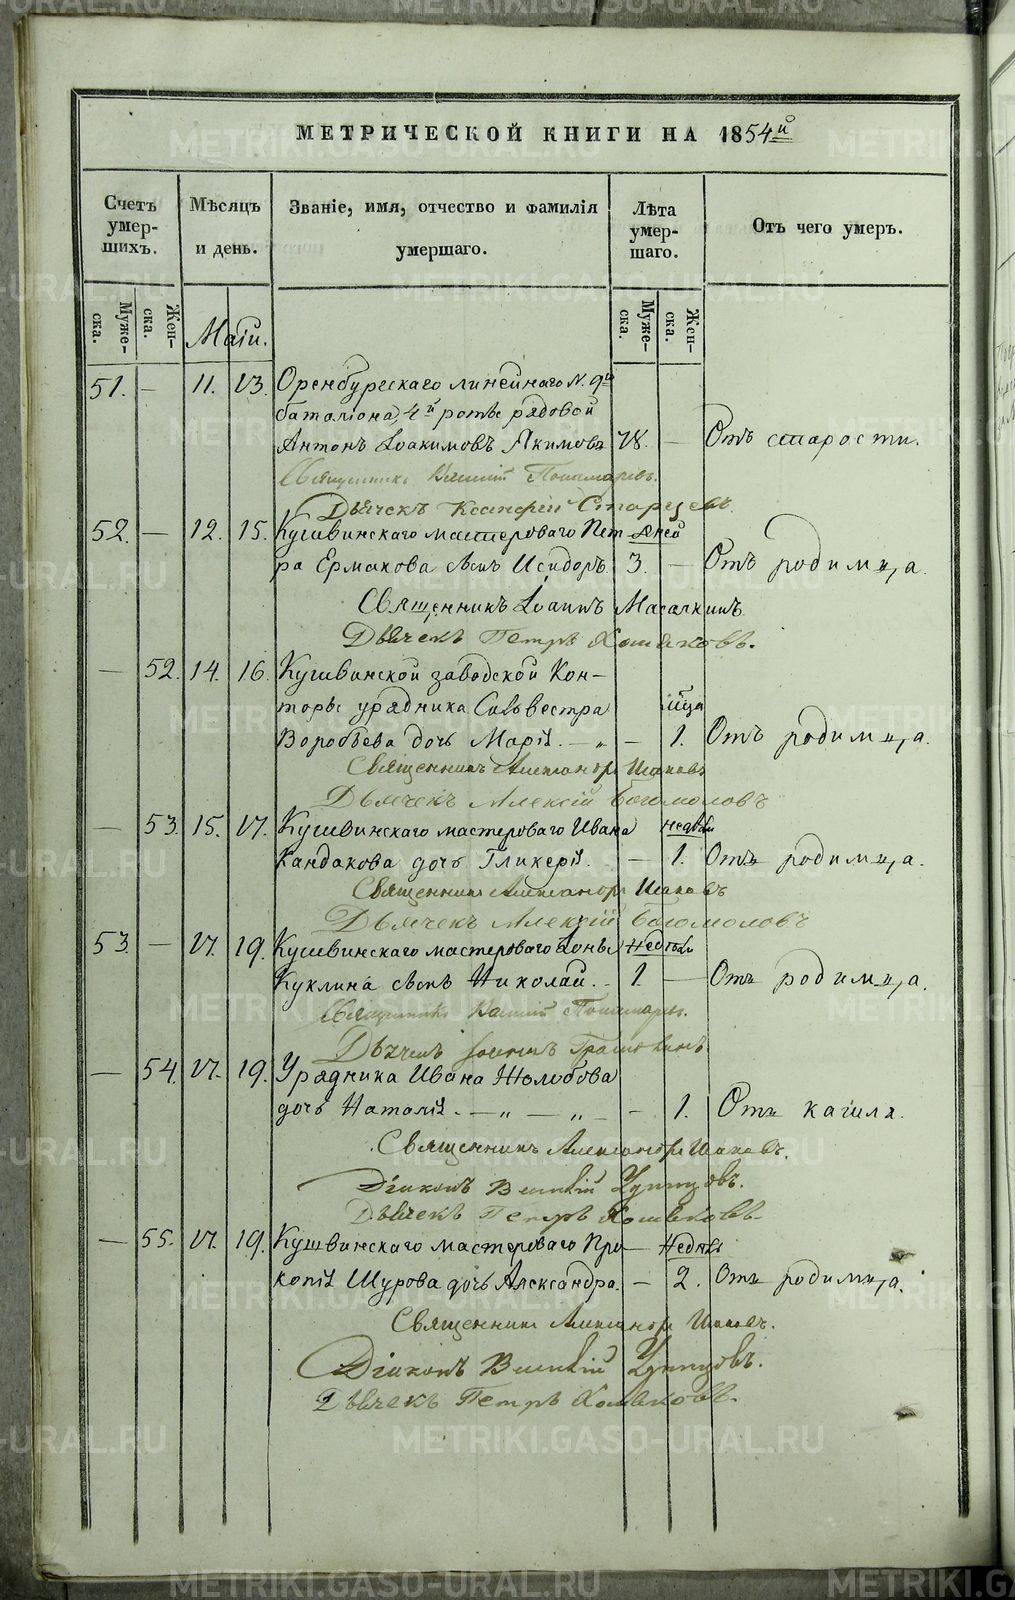 МЕТРИЧЕСКОЙ КНИГИ НА 1854й
Счетъ умер-шихъ.
Мѣсяцъ и день.
Званіе, имя, отчество и фамилія умершаго.
Лѣта умер-шаго.
Отъ чего умеръ.
Муже-ска.
Жен-ска.
Маій.
Муже-ска.
Жен-ска.
51. — 11. 13. Оренбургскаго линейнаго N. 9й
баталіона, 4й роты рядовой
Антонъ Іоакимовъ Якимовъ 78. — Отъ старости.
Священникъ Пономаревъ.
Дьячекъ Ксенофонтъ Старцевъ.
52. — 12. 15. Кушвинскаго мастероваго Пет- дней
ра Ермакова сынъ Исидоръ. 3. — Отъ родимца.
Священникъ Іоаннъ Масалкинъ
Дьячекъ Петръ Хомяковъ.
— 52. 14. 16. Кушвинской заводской Кон-
торы урядника Сильвестра
Воробьева дочь Марія. — „ — 1. Отъ родимца.
Священникъ Александръ
Дьячекъ Алексій Богомоловъ
— 53. 15. 17. Кушвинскаго мастероваго Ивана недѣли
Кандакова дочь Гликерія. — 1. Отъ родимца.
Священникъ Александръ
Дьячекъ Алексій Богомоловъ
53. — 17. 19. Кушвинскаго мастероваго Іоны Недѣли
Куклина сынъ Николай. 1. — Отъ родимца.
Священникъ Пономаревъ.
Дьячекъ
— 54. 17. 19. Урядника Ивана Жолобова
дочь Наталія. — „ — „ — 1. Отъ кашля.
Священникъ Александръ
Діаконъ Василій
Дьячекъ Петръ Хомяковъ.
— 55. 17. 19. Кушвинскаго мастероваго Про- Недѣль
копія Шурова дочь Александра. — 2. Отъ родимца.
Священникъ Александръ
Діаконъ Василій
Дьячекъ Петръ Хомяковъ.
METRIKI.GASO-URAL.RU